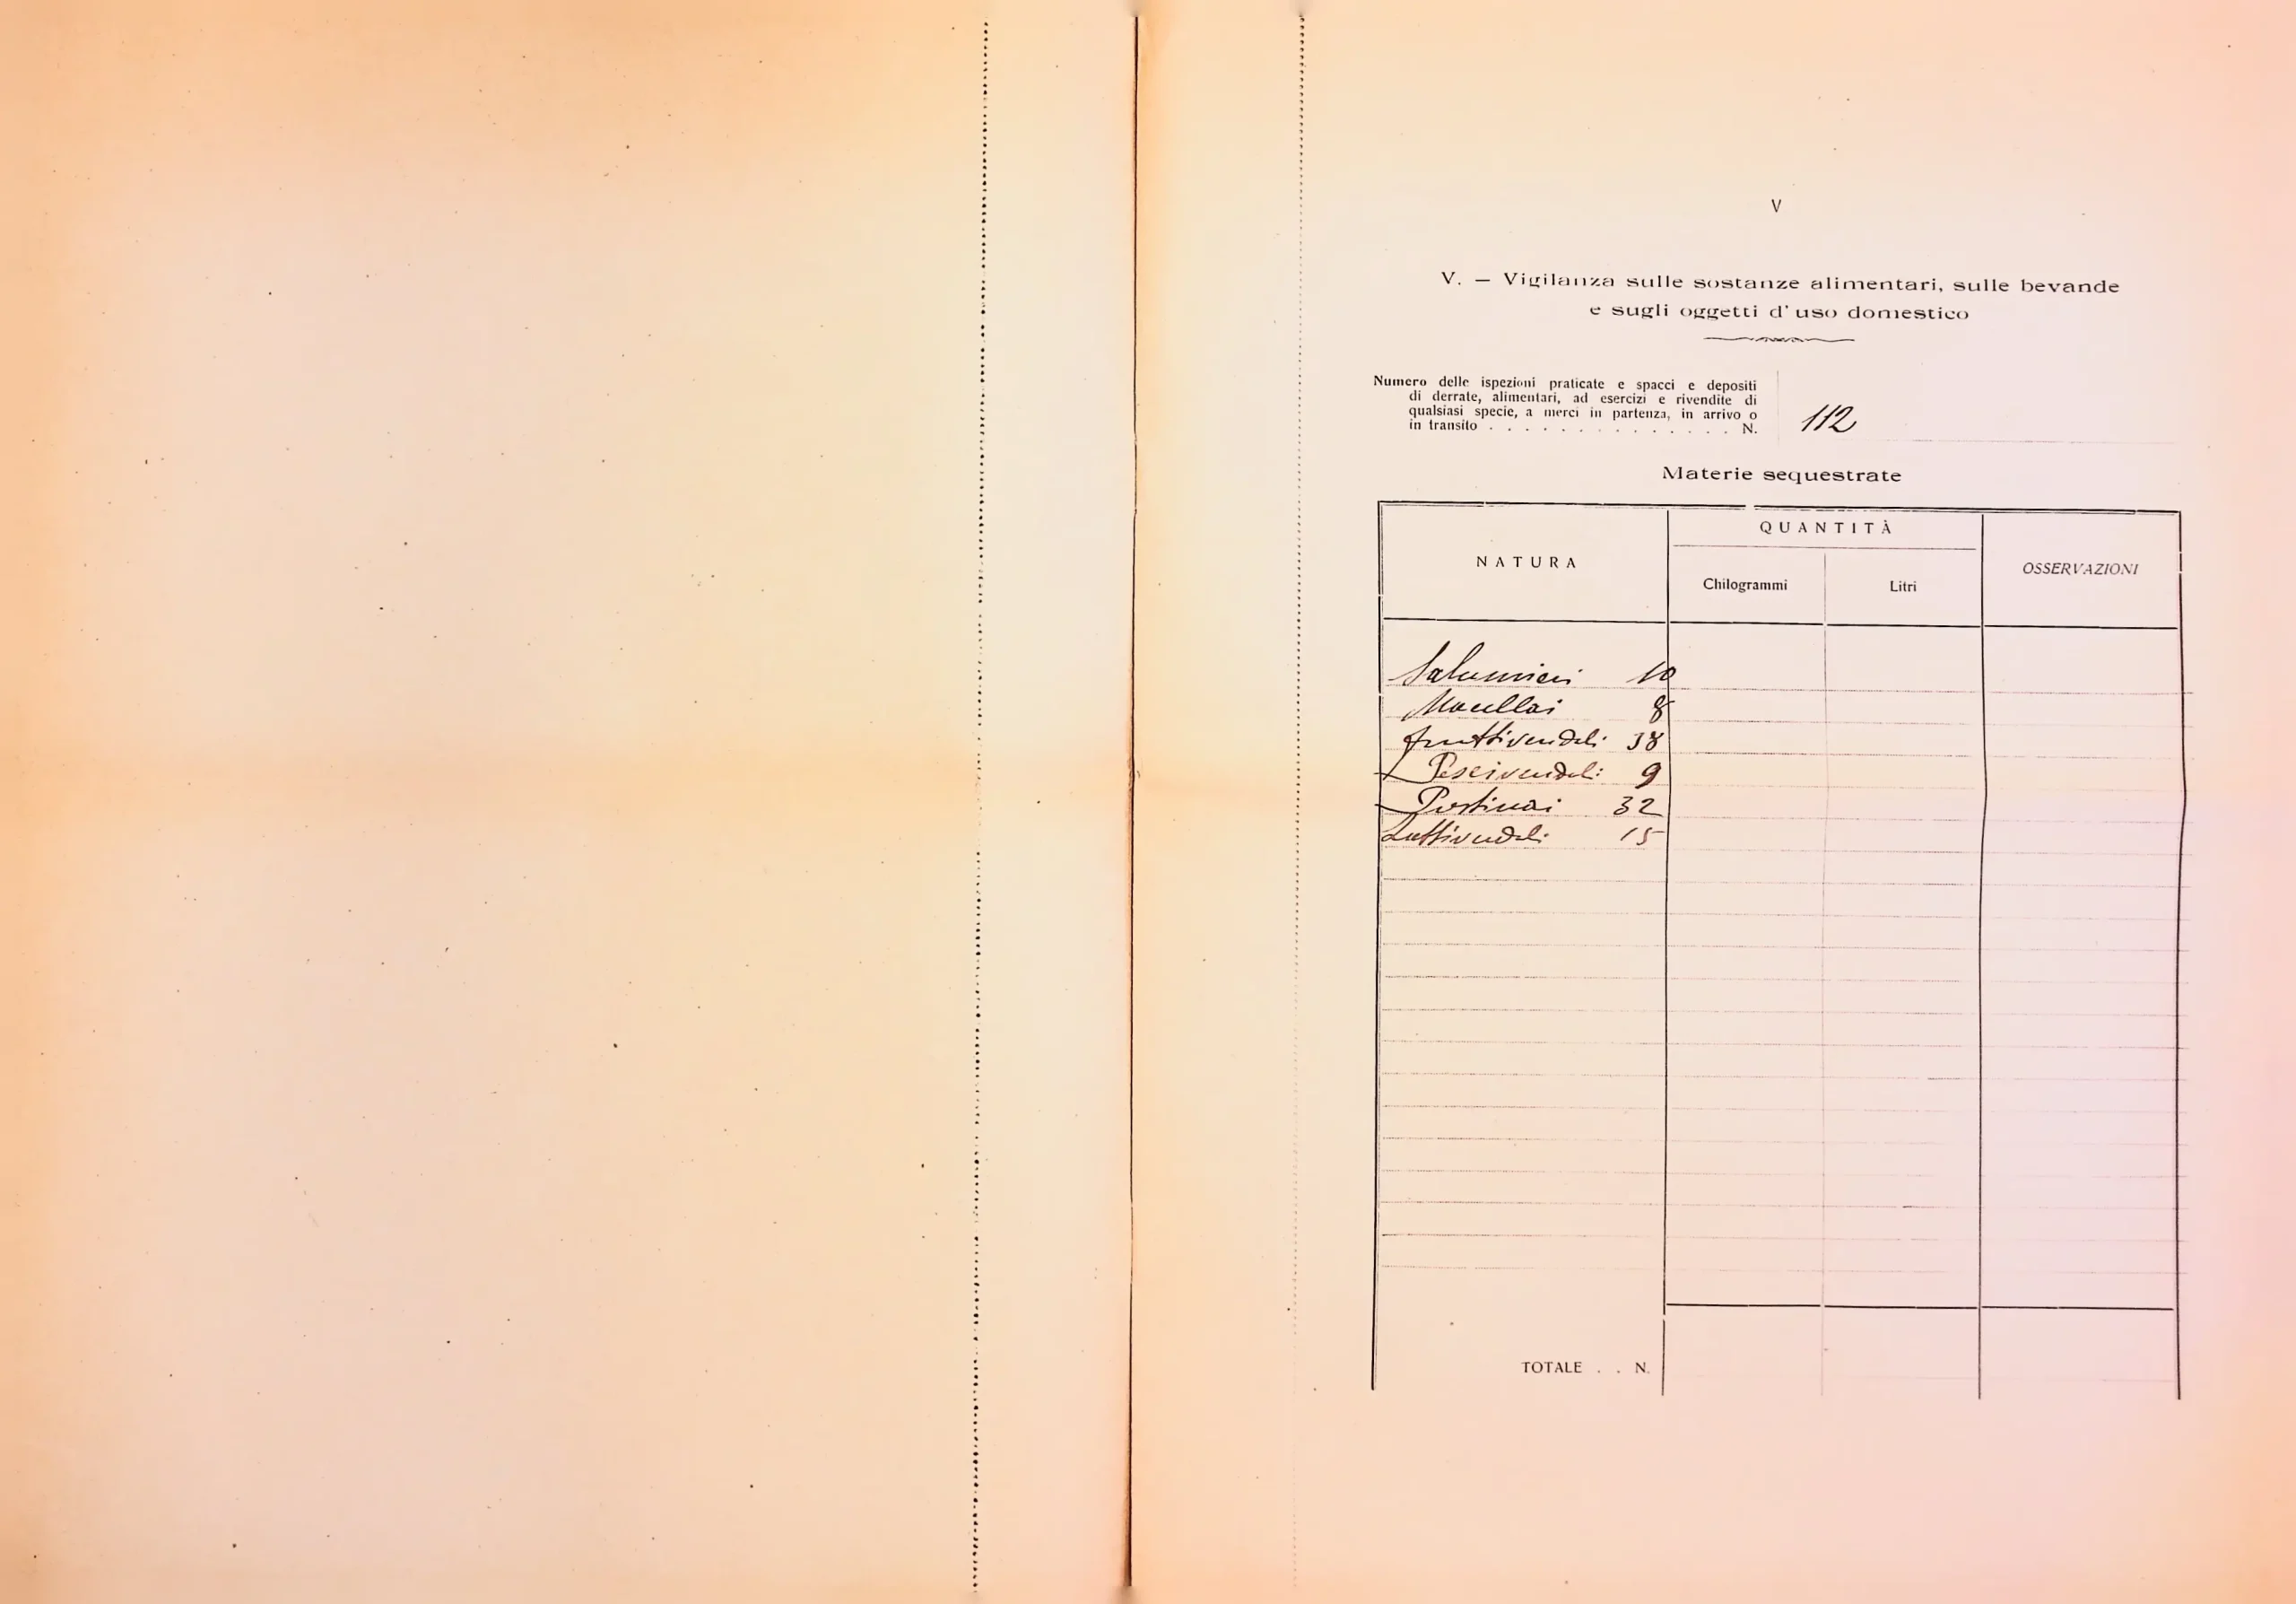 V
V. — Vigilanza sulle sostanze alimentari, sulle bevande
e sugli oggetti d'uso domestico
Numero delle ispezioni praticate e spacci e depositi
di derrate, alimentari, ad esercizi e rivendite di
qualsiasi specie, a merci in partenza, in arrivo o
in transito . . . . . . . . . . . . . . N. 112
Materie sequestrate
NATURA
QUANTITÀ
Chilogrammi
Litri
OSSERVAZIONI
Salumieri 10
Macellai 8
fruttivendoli 38
Pescivendoli 9
32
Lattivendoli 15
TOTALE . . N.